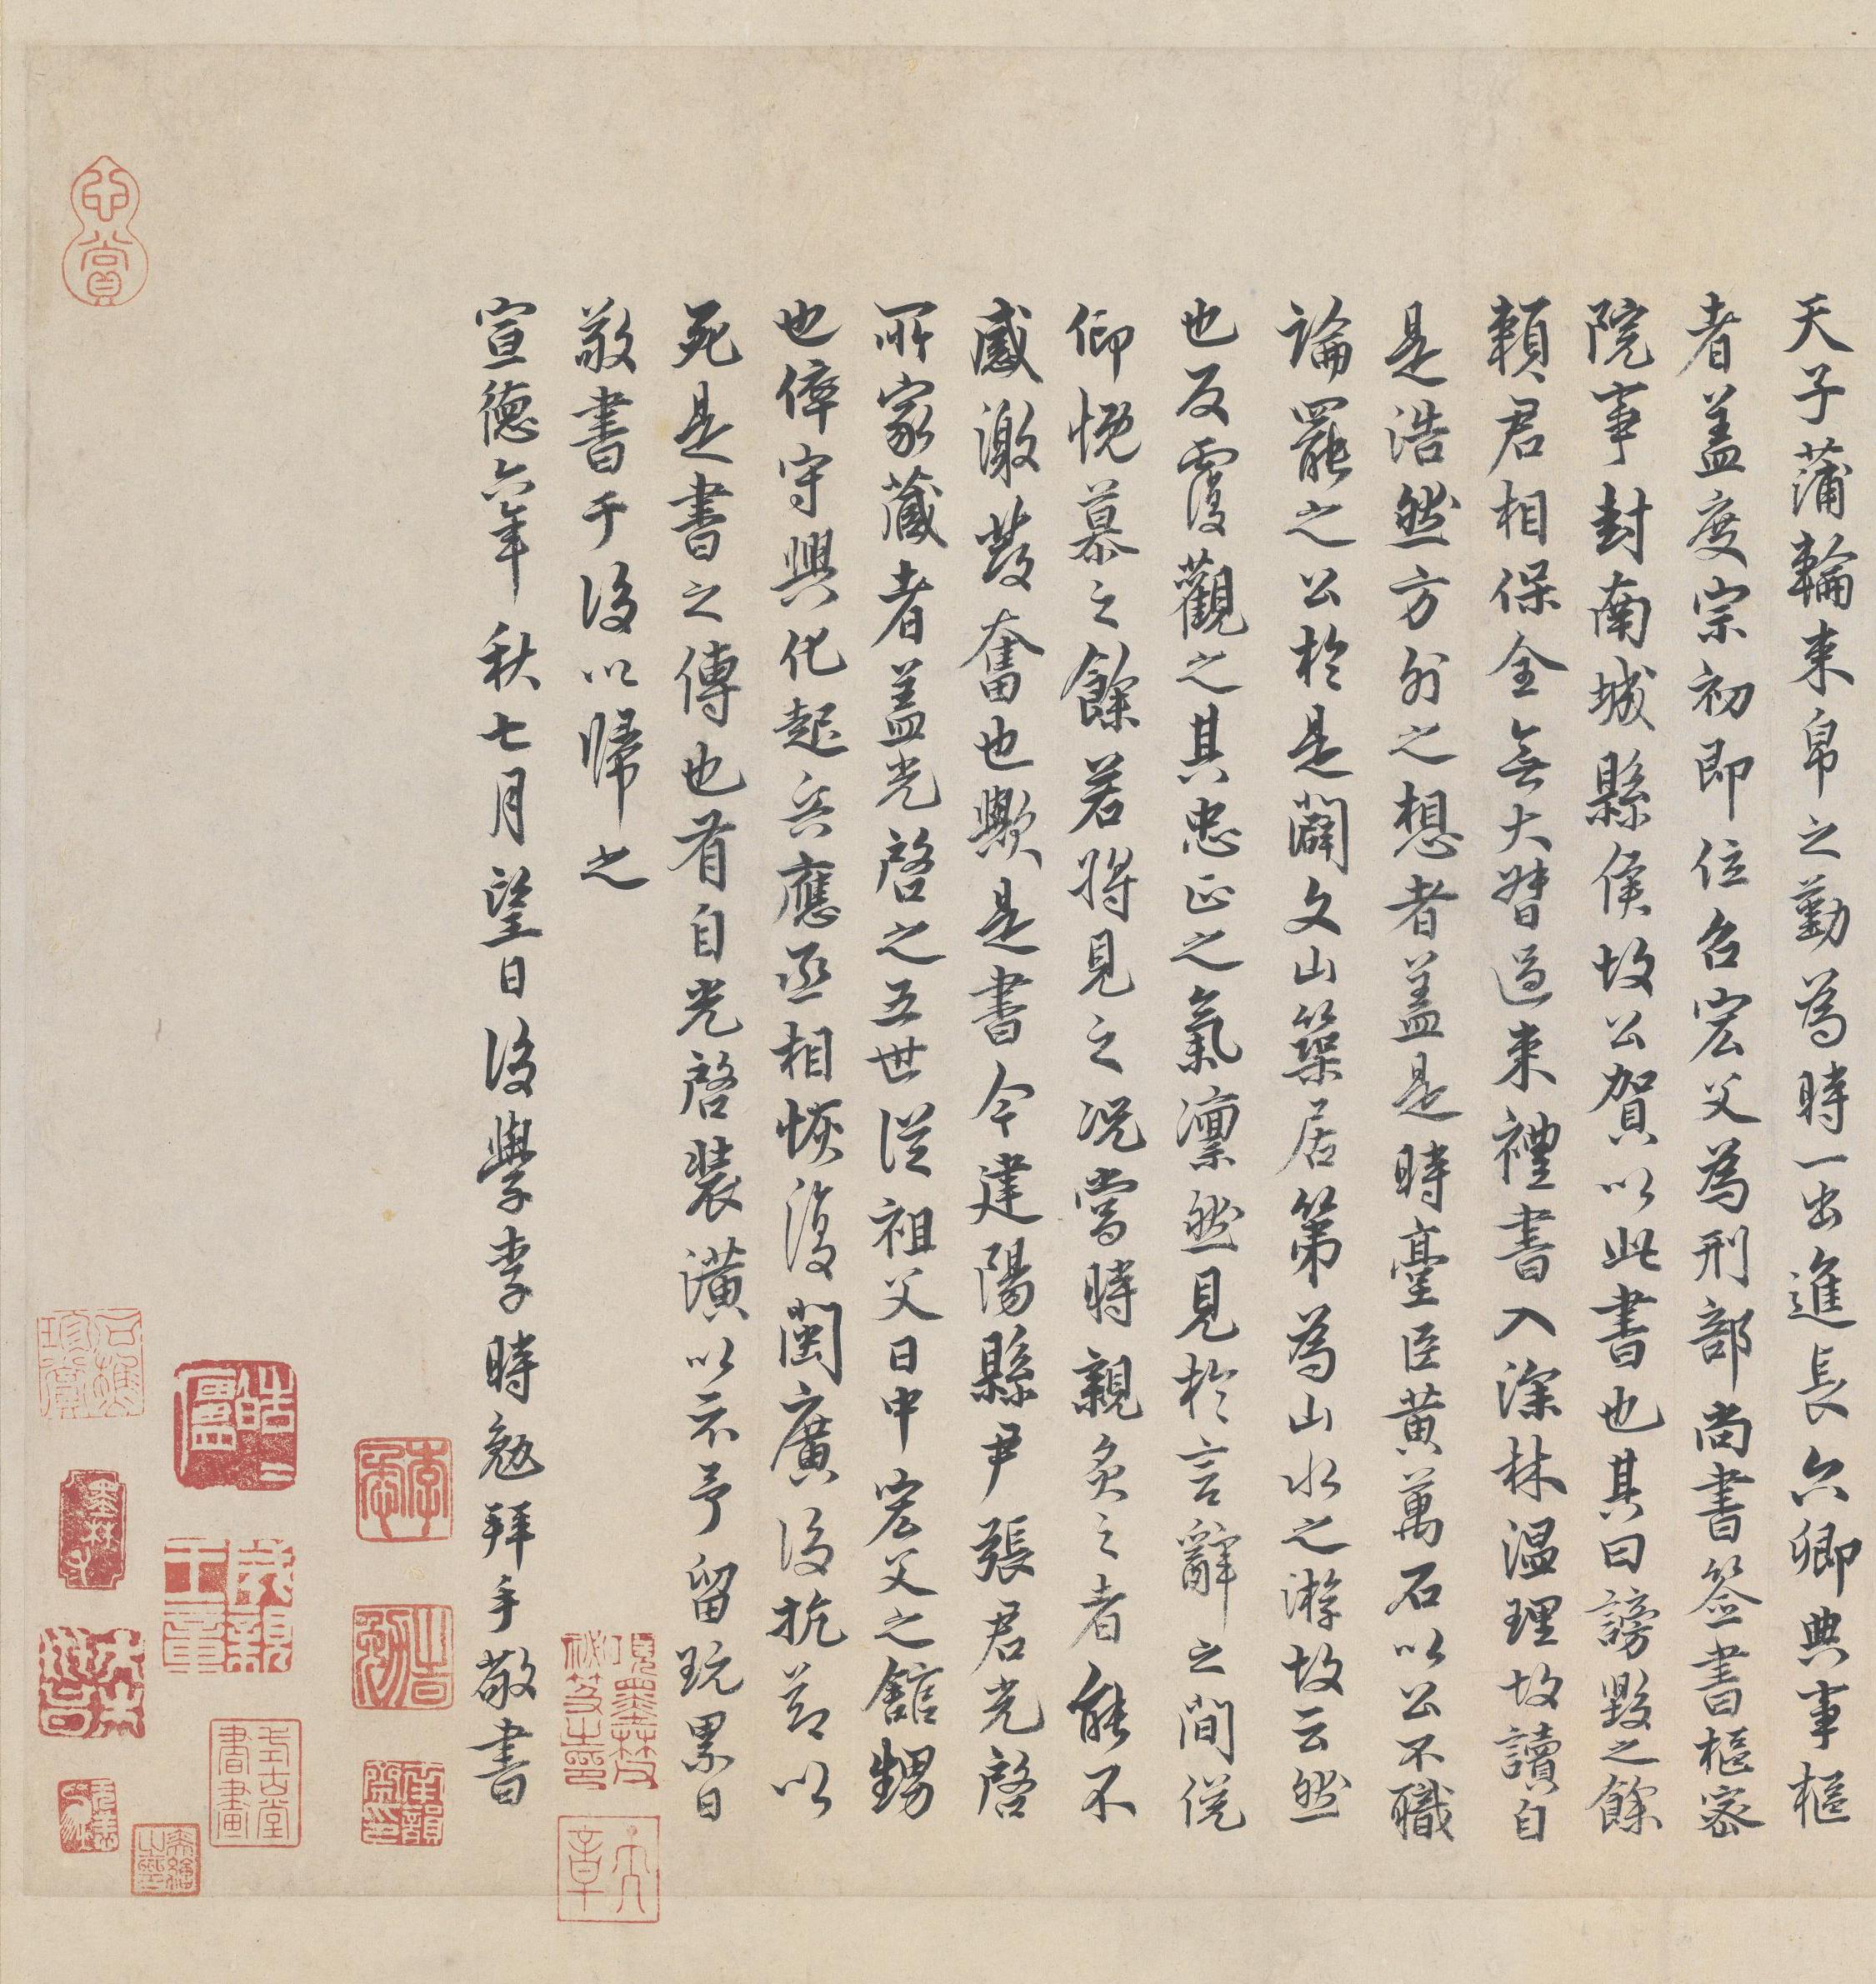 天子蒲輪束帛之勤為時一出進長六卿典事樞
者蓋度宗初即位召宏父為刑部尚書簽書樞密
院事封南城縣侯故公賀以此書也其曰謗毀之餘
賴君相保全無大朁過來禮書入深林温理故讀自
是浩然方外之想者蓋是時臺臣黃萬石以公不職
論罷之公於是闢文山築居第為山水之游故云然
也反覆觀之其忠正之氣凛然見於言辭之間俛
仰悅慕之餘若將見之况當時親炙之者能不
感激發奮也歟是書今建陽縣尹張君光啓
所家藏者蓋光啓之五世從祖父曰中宏父之館甥
也倅守興化起兵應丞相恢復閩廣後抗節以
死是書之傳也有自光啓裝潢以示予留玩累日
敬書于後以歸之
宣德六年秋七月望日後學李時勉拜手敬書